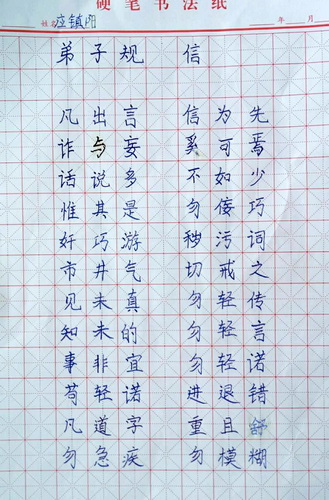 硬笔书法纸
姓名 庄镇阳 年 月
弟子规 信
凡出言 信为先
诈与妄 奚可焉
话说多 不如少
惟其是 勿佞巧
奸巧游 秽污词
市井气 切戒之
见未真 勿轻传
知未的 勿轻言
事非宜 勿轻诺
苟轻诺 进退错
凡道字 重且舒
勿急疾 勿模糊